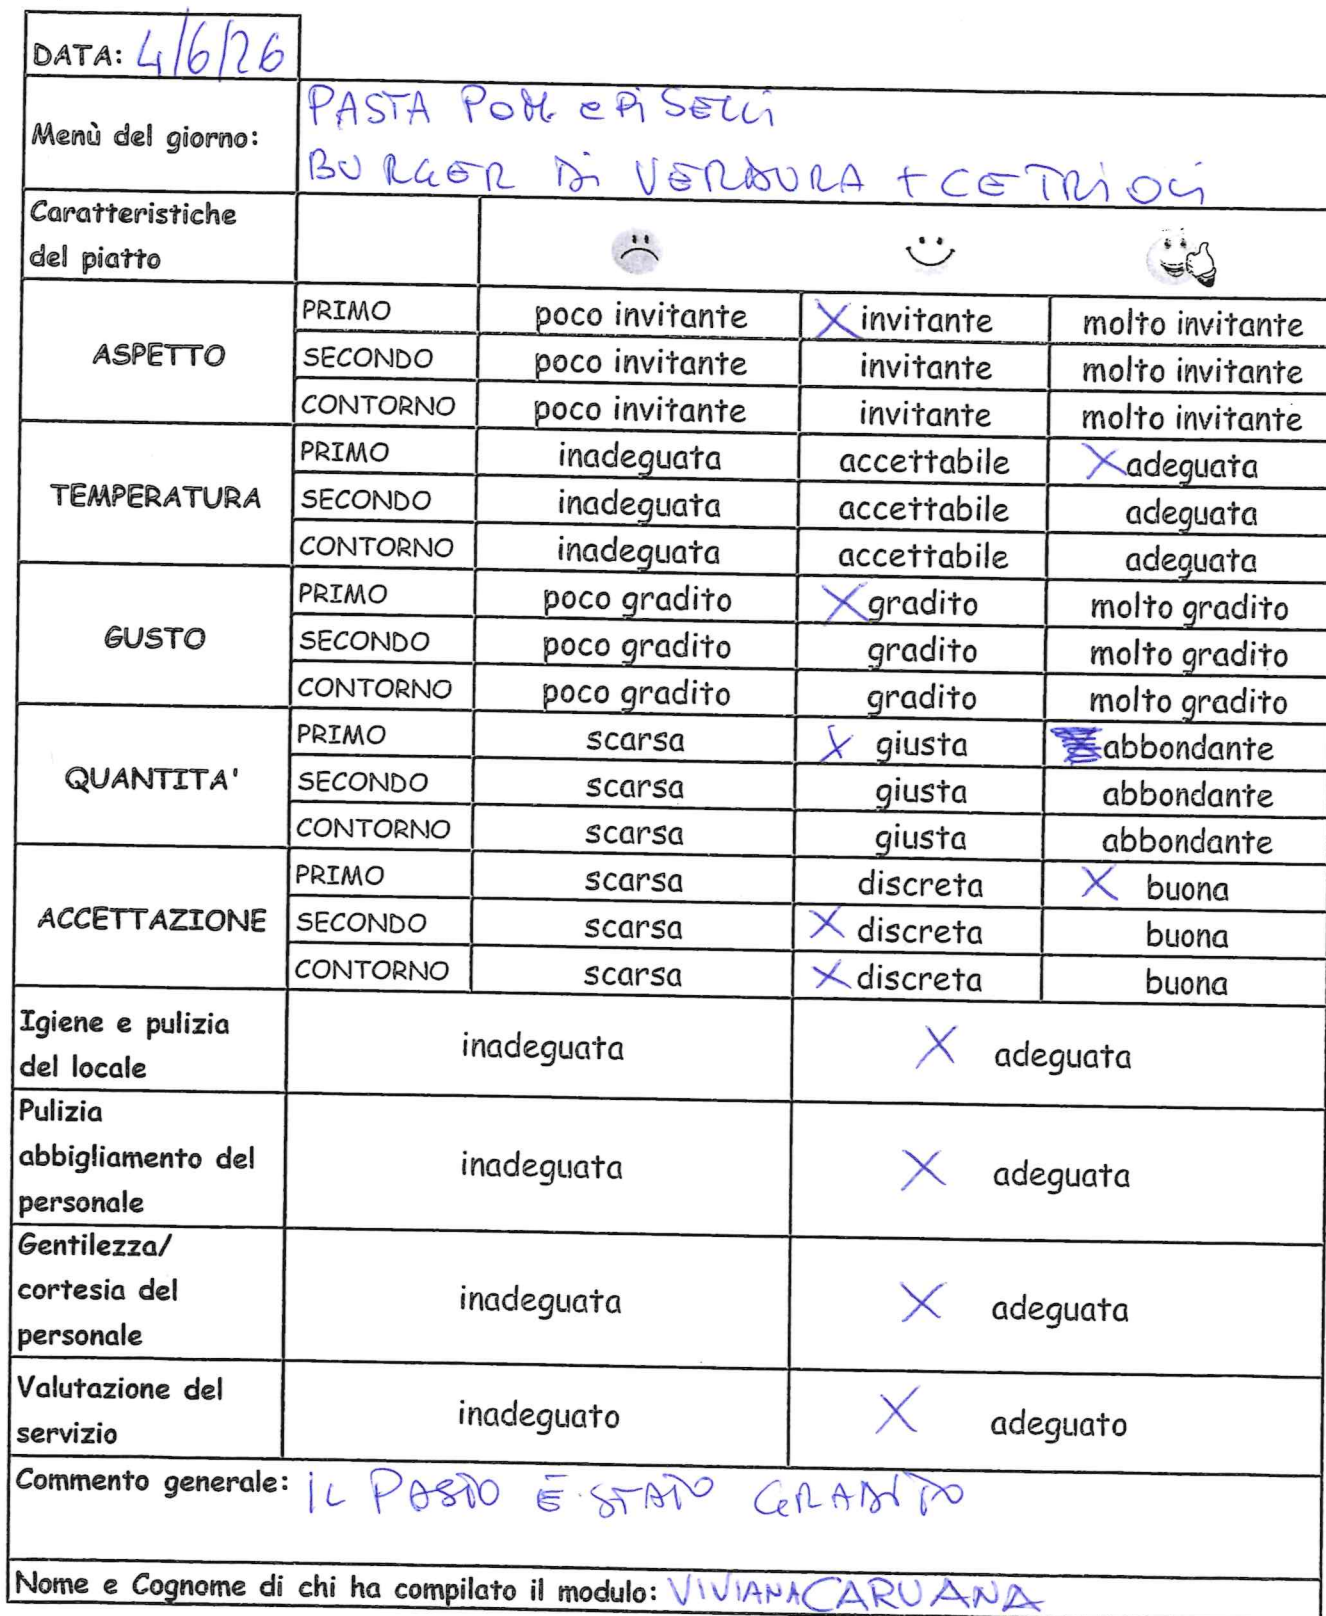 DATA: 4/6/26
Menù del giorno: PASTA POM. e PiSELLi
BURGER Di VERDURA + CETRiOLi
Caratteristiche
del piatto
ASPETTO
PRIMO poco invitante X invitante molto invitante
SECONDO poco invitante invitante molto invitante
CONTORNO poco invitante invitante molto invitante
TEMPERATURA
PRIMO inadeguata accettabile X adeguata
SECONDO inadeguata accettabile adeguata
CONTORNO inadeguata accettabile adeguata
GUSTO
PRIMO poco gradito X gradito molto gradito
SECONDO poco gradito gradito molto gradito
CONTORNO poco gradito gradito molto gradito
QUANTITA'
PRIMO scarsa X giusta abbondante
SECONDO scarsa giusta abbondante
CONTORNO scarsa giusta abbondante
ACCETTAZIONE
PRIMO scarsa discreta X buona
SECONDO scarsa X discreta buona
CONTORNO scarsa X discreta buona
Igiene e pulizia
del locale
inadeguata X adeguata
Pulizia
abbigliamento del
personale
inadeguata X adeguata
Gentilezza/
cortesia del
personale
inadeguata X adeguata
Valutazione del
servizio
inadeguato X adeguato
Commento generale: IL PASTO È STATO GRADITO
Nome e Cognome di chi ha compilato il modulo: VIVIANA CARUANA